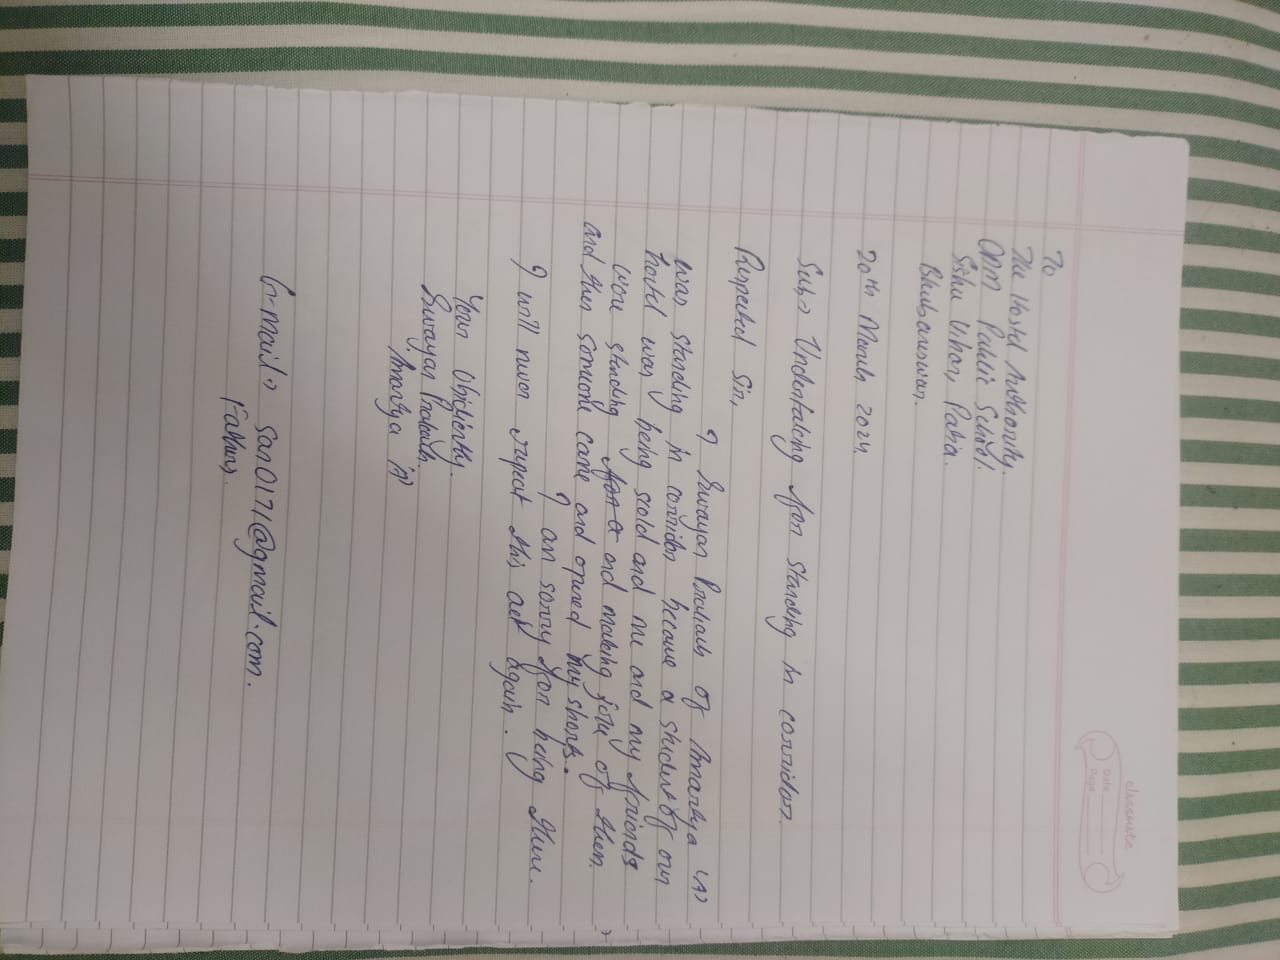 classmate
Date
Page
To
The Hostel Authority.
ODM Public School.
Sishu Vihar, Patia.
Bhubaneswar.
20th March 2024
Sub→ Undertaking for standing in corridor.
Respected Sir,
I Swayan Prakash of Amartya
was standing in corridor because a student of our
hostel was being scold and me and my friends
were standing for a and making joke of them
and then someone came and opened my shorts.
I am sorry for being there.
I will never repeat this act again.
Your Obidiently.
Swayan Prakash
Amartya
G-mail→ san0171@gmail.com.
Father